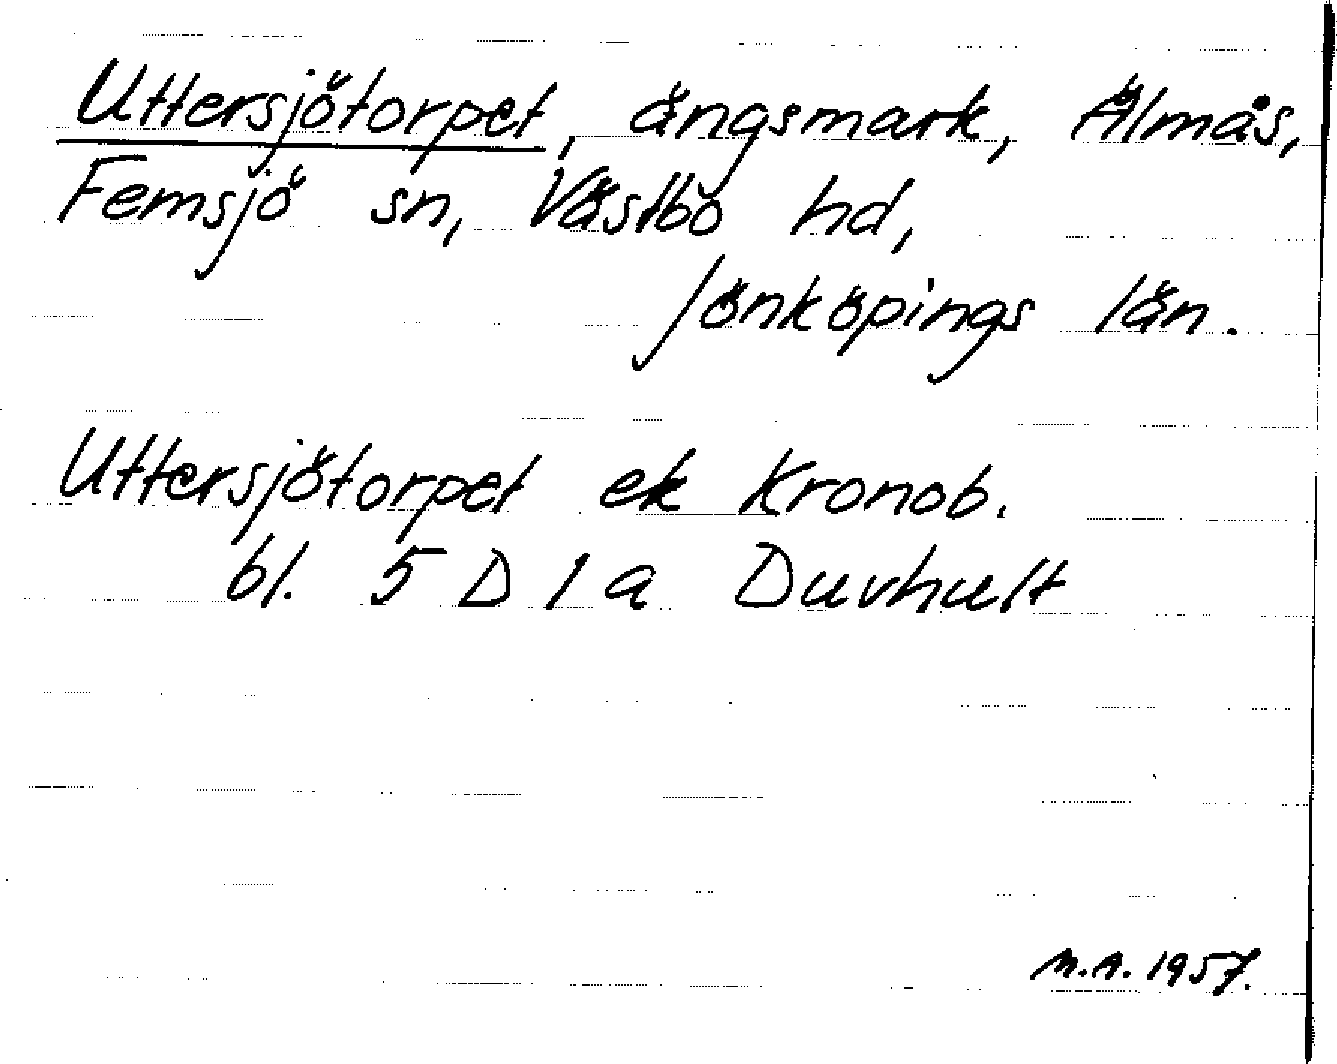 Uttersjötorpet, ängsmark, Älmås,
Femsjö sn, Västbo hd,
Jönköpings län.
Uttersjötorpet ek Kronob.
bl. 5 D 1 a Duvhult
M.A. 1957.